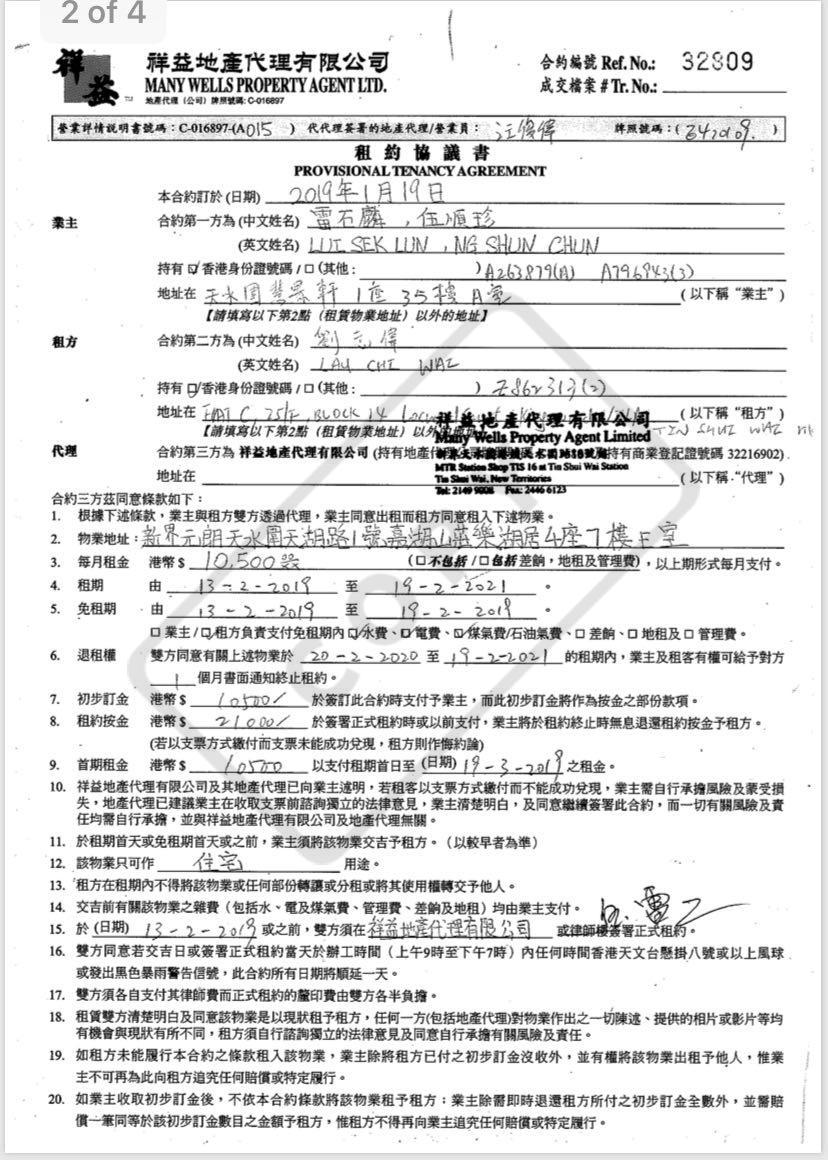 2 of 4
祥益
祥益地產代理有限公司
MANY WELLS PROPERTY AGENT LTD.
地產代理（公司）牌照號碼: C-016897
合約編號 Ref. No.: 32809
成交檔案 # Tr. No.:
營業詳情說明書號碼：C-016897-(A015 ) 代代理簽署的地產代理/營業員： 牌照號碼：(
租約協議書
PROVISIONAL TENANCY AGREEMENT
本合約訂於 (日期) 2019年1月19日
業主 合約第一方為 (中文姓名) 雷石麟，伍順珍
(英文姓名) LUI SEK LUN , NG SHUN CHUN
持有 ☑ 香港身份證號碼 / □ (其他： ) A263879(A) A796943(3)
地址在 天水圍慧景軒 1座 35樓 A室 (以下稱“業主”)
【請填寫以下第2點 (租賃物業地址) 以外的地址】
租方 合約第二方為 (中文姓名) 劉志偉
(英文姓名) LAU CHI WAI
持有 ☑ 香港身份證號碼 / □ (其他： ) Z862313(2)
地址在 FLAT C, 25/F, BLOCK 14 (以下稱“租方”)
【請填寫以下第2點 (租賃物業地址) 以外的地址 TIN SHUI WAI
祥益地產代理有限公司
Many Wells Property Agent Limited
MTR Station Shop TIS 16 at Tin Shui Wai Station
Tin Shui Wai, New Territories
Tel: 2149 9008 Fax: 2446 6123
代理 合約第三方為 祥益地產代理有限公司 (持有地產代 持有商業登記證號碼 32216902)
地址在 (以下稱“代理”)
合約三方茲同意條款如下：
1. 根據下述條款，業主與租方雙方透過代理，業主同意出租而租方同意租入下述物業。
2. 物業地址：新界元朗天水圍天湖路1號嘉湖山莊樂湖居4座7樓F室
3. 每月租金 港幣 $ 10,500 (□不包括 / □包括差餉，地租及管理費)，以上期形式每月支付。
4. 租期 由 13-2-2019 至 19-2-2021 。
5. 免租期 由 13-2-2019 至 19-2-2019 。
□ 業主 / ☑ 租方負責支付免租期內 ☑ 水費、☑ 電費、☑ 煤氣費/石油氣費、□ 差餉、□ 地租及 □ 管理費。
6. 退租權 雙方同意有關上述物業於 20-2-2020 至 19-2-2021 的租期內，業主及租客有權可給予對方
1 個月書面通知終止租約。
7. 初步訂金 港幣 $ 10500/ 於簽訂此合約時支付予業主，而此初步訂金將作為按金之部份款項。
8. 租約按金 港幣 $ 21000/ 於簽署正式租約時或以前支付，業主將於租約終止時無息退還租約按金予租方。
(若以支票方式繳付而支票未能成功兌現，租方則作悔約論)
9. 首期租金 港幣 $ 10500 以支付租期首日至 (日期) 19-3-2019 之租金。
10. 祥益地產代理有限公司及其地產代理已向業主述明，若租客以支票方式繳付而不能成功兌現，業主需自行承擔風險及蒙受損
失，地產代理已建議業主在收取支票前諮詢獨立的法律意見，業主清楚明白，及同意繼續簽署此合約，而一切有關風險及責
任均需自行承擔，並與祥益地產代理有限公司及地產代理無關。
11. 於租期首天或免租期首天或之前，業主須將該物業交吉予租方。（以較早者為準）
12. 該物業只可作 住宅 用途。
13. 租方在租期內不得將該物業或任何部份轉讓或分租或將其使用權轉交予他人。
14. 交吉前有關該物業之雜費（包括水、電及煤氣費、管理費、差餉及地租）均由業主支付。
15. 於 (日期) 13-2-2019 或之前，雙方須在 祥益地產代理有限公司 或律師樓簽署正式租約。
16. 雙方同意若交吉日或簽署正式租約當天於辦工時間（上午9時至下午7時）內任何時間香港天文台懸掛八號或以上風球
或發出黑色暴雨警告信號，此合約所有日期將順延一天。
17. 雙方須各自支付其律師費而正式租約的釐印費由雙方各半負擔。
18. 租賃雙方清楚明白及同意該物業是以現狀租予租方，任何一方(包括地產代理)對物業作出之一切陳述、提供的相片或影片等均
有機會與現狀有所不同，租方須自行諮詢獨立的法律意見及同意自行承擔有關風險及責任。
19. 如租方未能履行本合約之條款租入該物業，業主除將租方已付之初步訂金沒收外，並有權將該物業出租予他人，惟業
主不可再為此向租方追究任何賠償或特定履行。
20. 如業主收取初步訂金後，不依本合約條款將該物業租予租方：業主除需即時退還租方所付之初步訂金全數外，並需賠
償一筆同等於該初步訂金數目之金額予租方，惟租方不得再向業主追究任何賠償或特定履行。
COPY